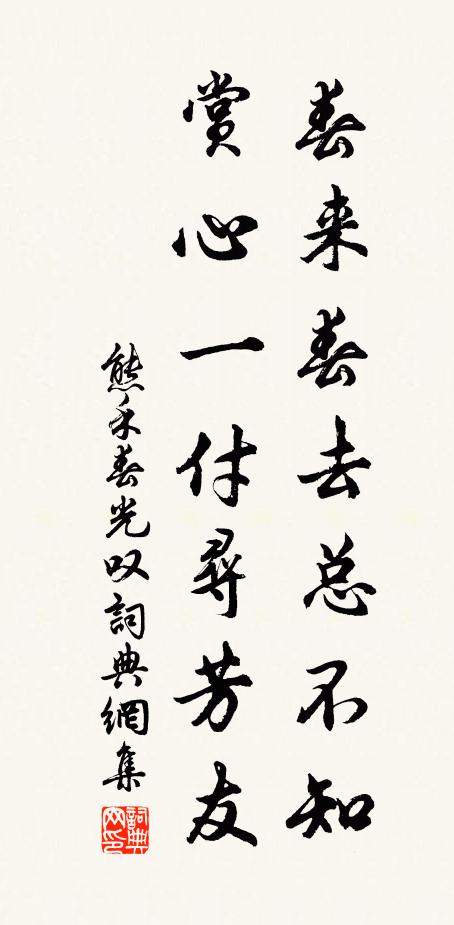 春来春去总不知
赏心一付尋芳友
熊禾春光叹詞典網集
詞典网印